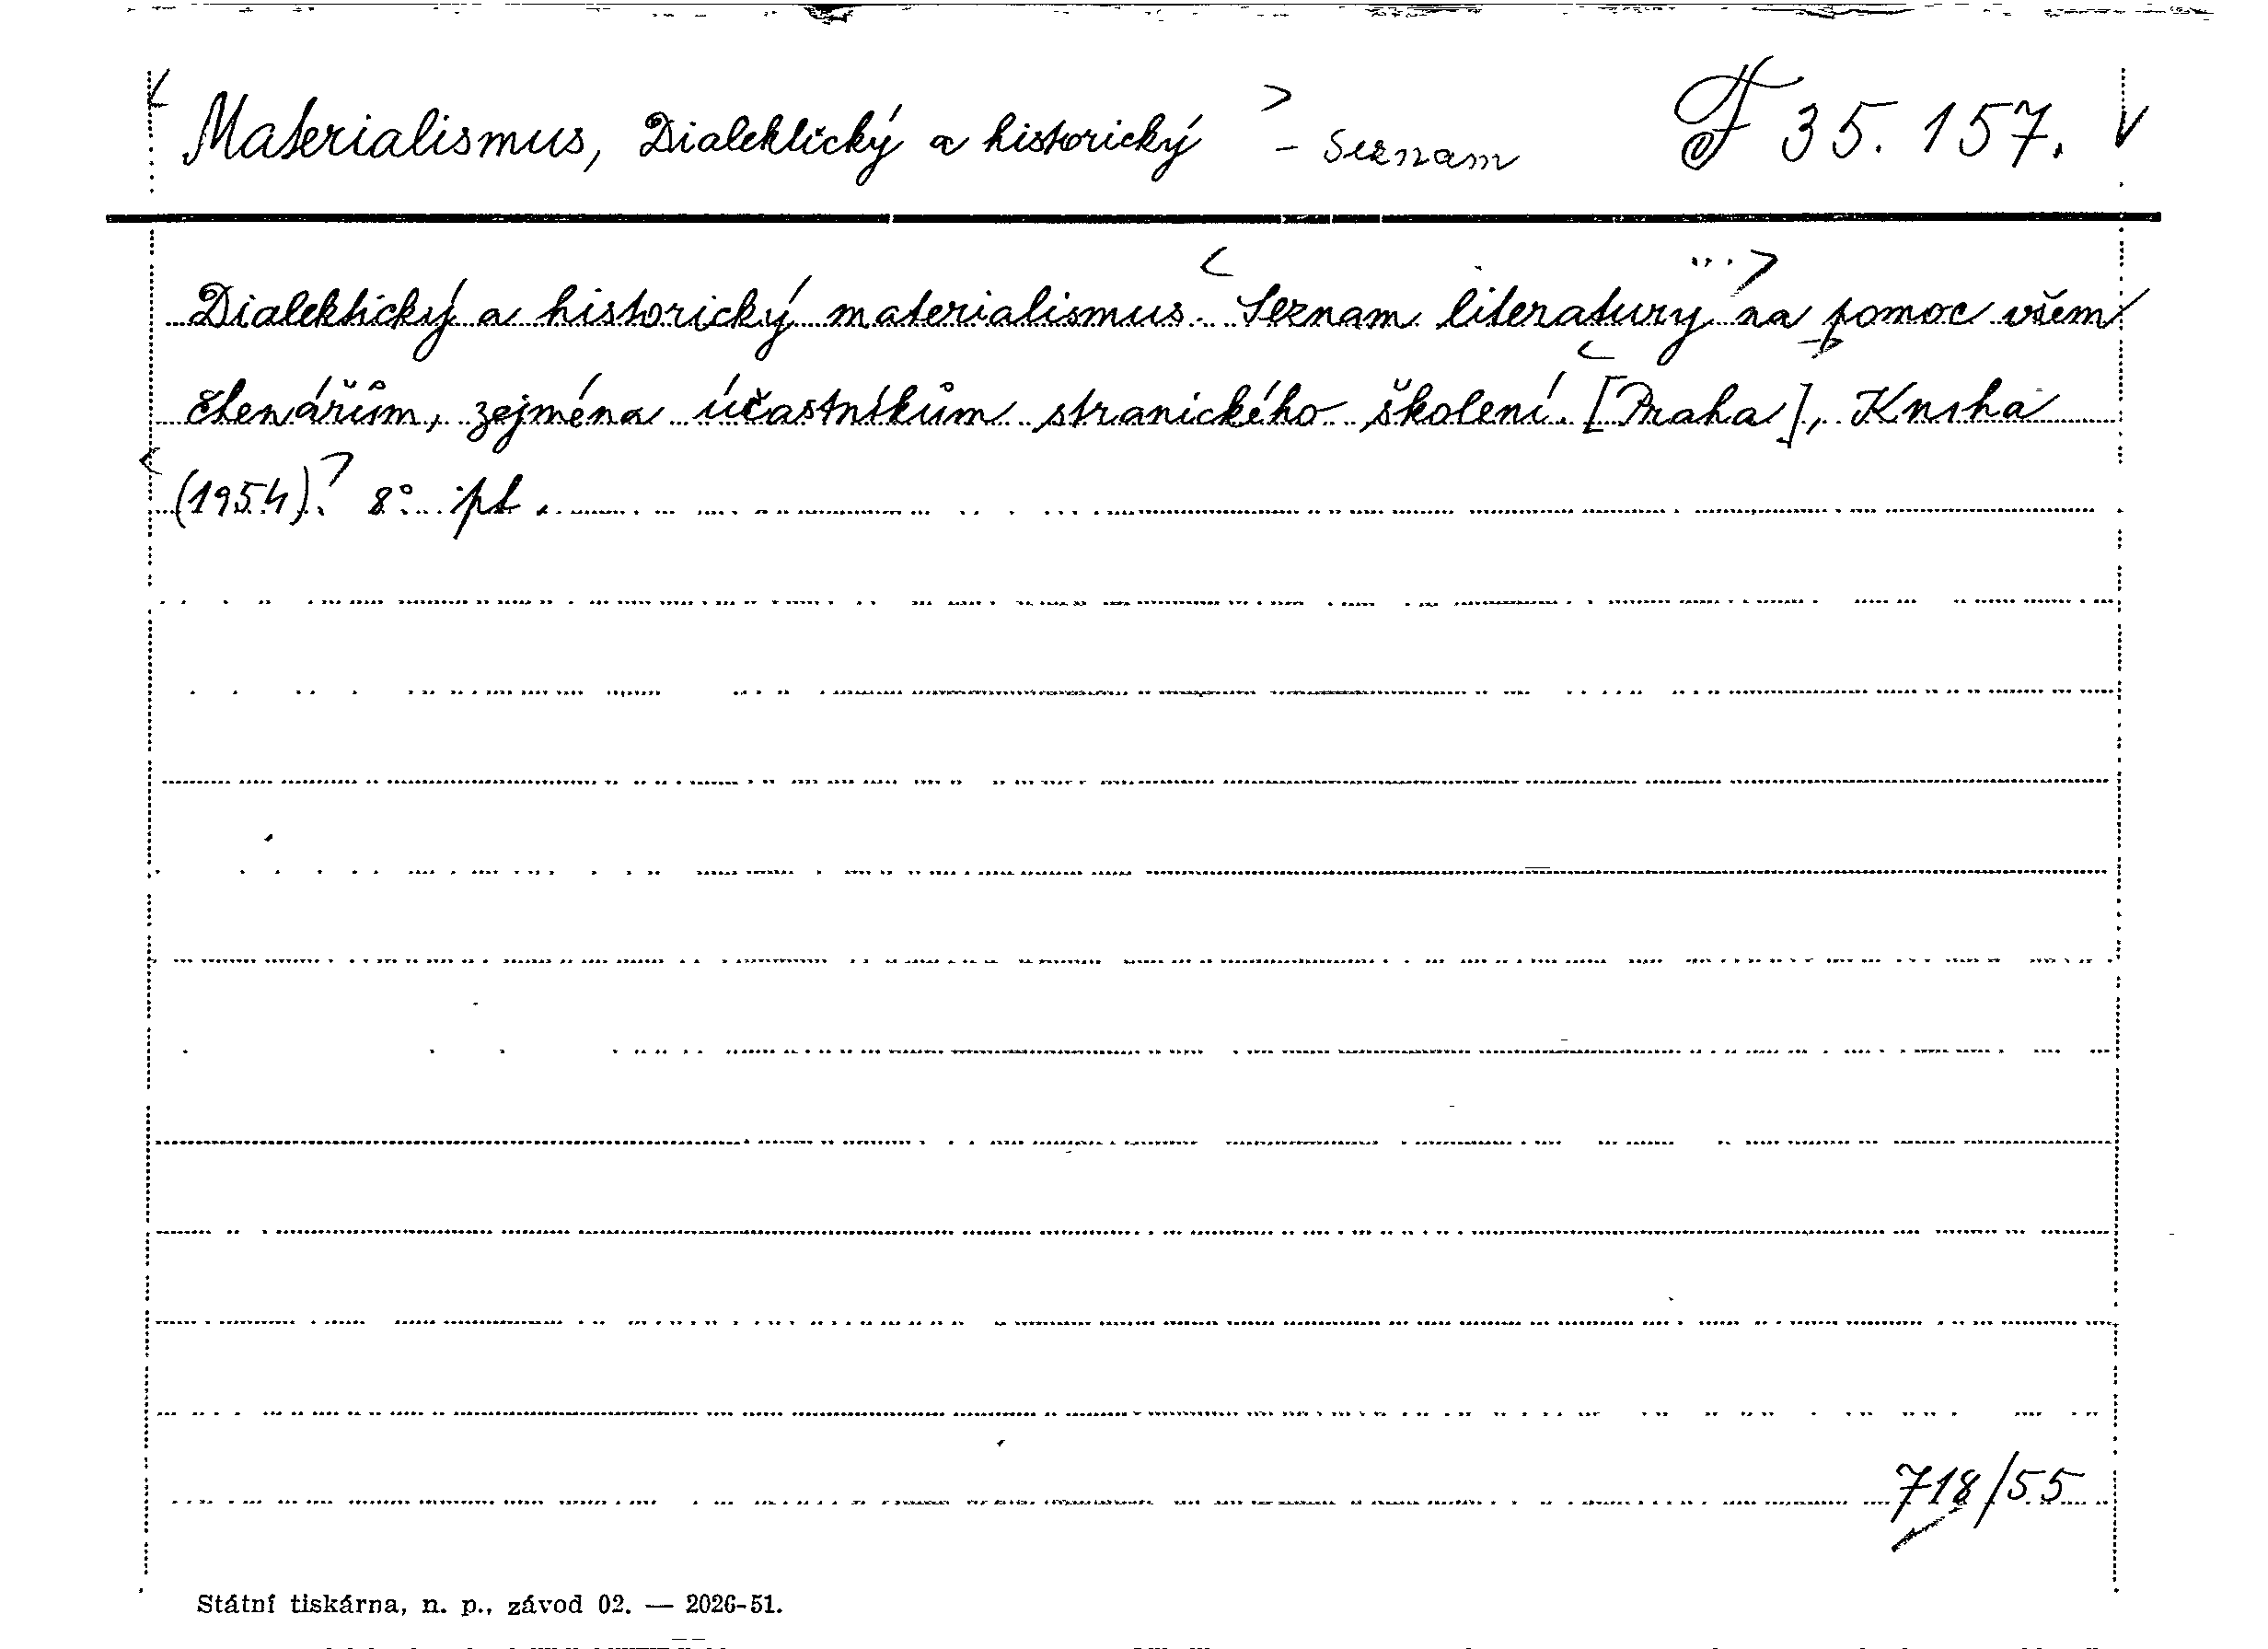 < Materialismus, Dialektický a historický > - Seznam F 35.157. V
Dialektický a historický materialismus. < Seznam literatury ...> na pomoc všem
čtenářům, zejména účastníkům stranického školení. < [Praha], Kniha
< (1954). > 8°. ipt.
718/55
Státní tiskárna, n. p., závod 02. — 2026-51.